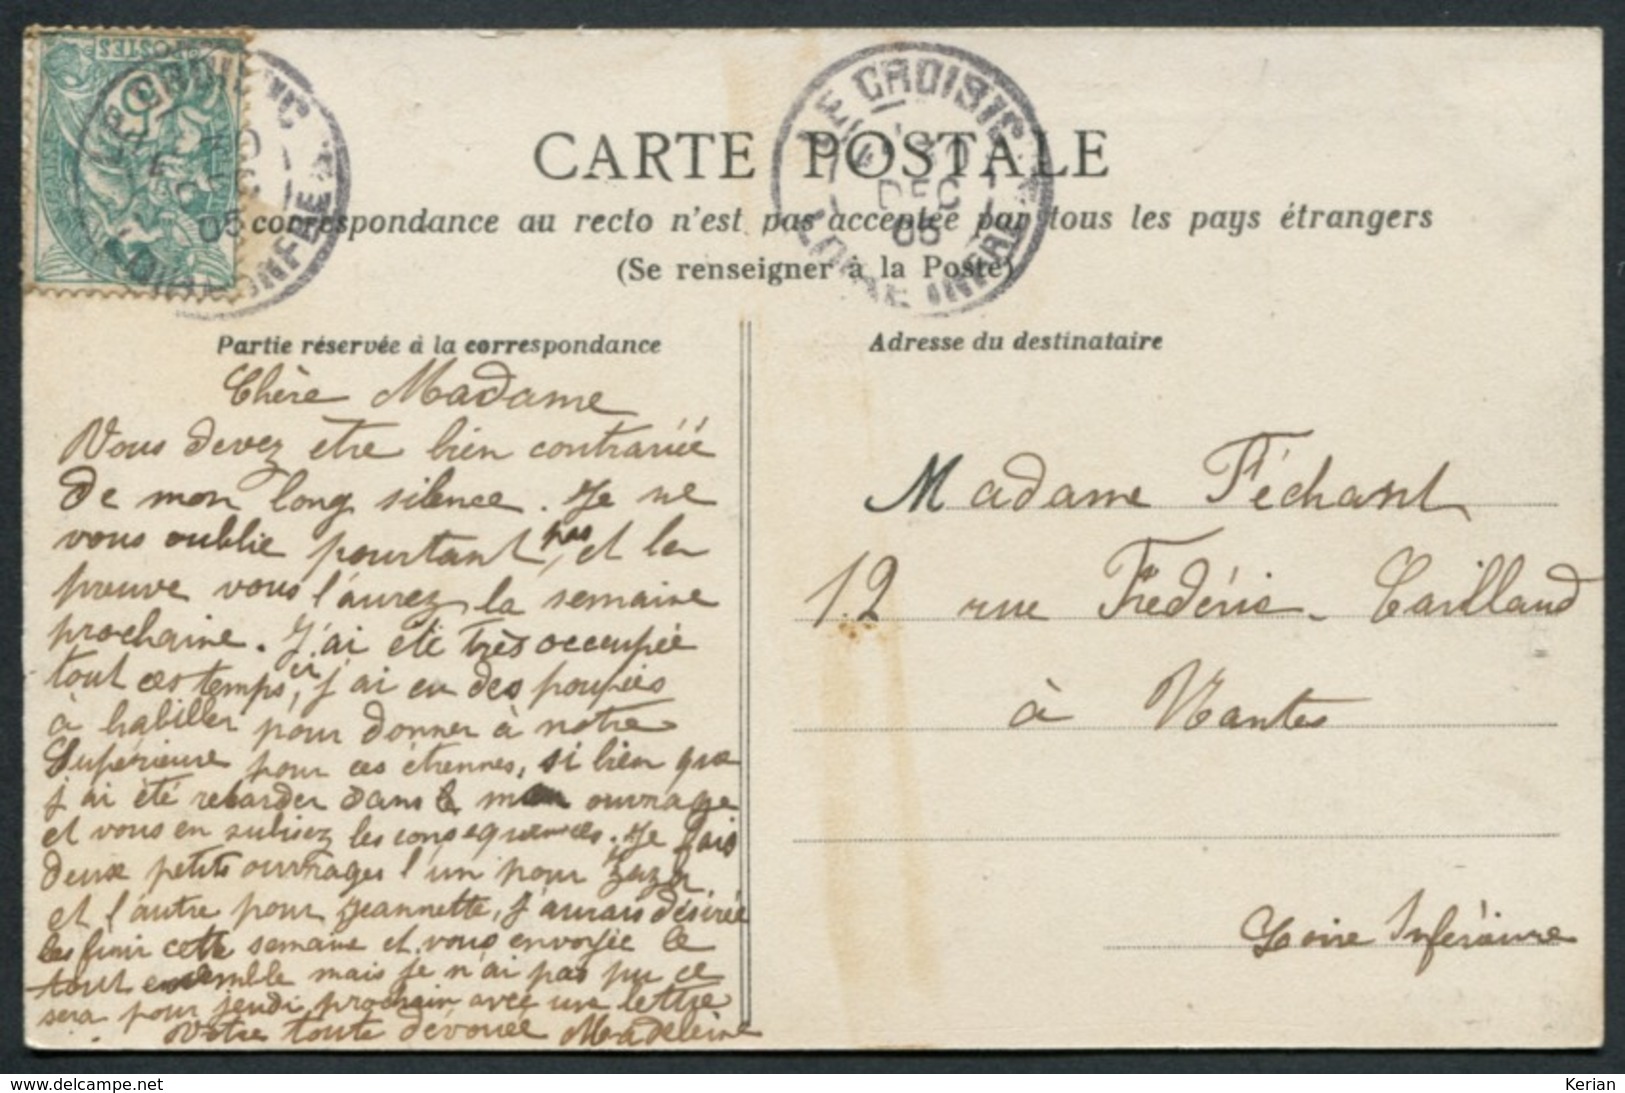 POSTES
5
LE CROISIC
LOIRE INFRE
DEC
05
CARTE POSTALE
LE CROISIC
30
DEC
05
LOIRE INFRE
La correspondance au recto n'est pas acceptée par tous les pays étrangers
(Se renseigner à la Poste)
Partie réservée à la correspondance
Chère Madame
Vous devez être bien contrariée
de mon long silence. Je ne
vous oublie pourtant pas, et la
preuve vous l'aurez la semaine
prochaine. J'ai été très occupée
tout ces temps ci, j'ai eu des poupées
à habiller pour donner à notre
Supérieure pour ces étrennes, si bien que
j'ai été retarder dans mon ouvrage
et vous en subisez les conséquences. Je fais
deux petits ouvrages l'un pour Zaza
et l'autre pour Jeannette, j'aurais désirée
les finir cette semaine et vous envoyée le
tout ensemble mais je n'ai pas pu ce
sera pour jeudi prochain avec une lettre
Votre toute dévouée Madeleine
Adresse du destinataire
Madame Féchant
12 rue Frédéric Cailland
à Nantes
Loire Inférieure
Kerian
delcampe.net